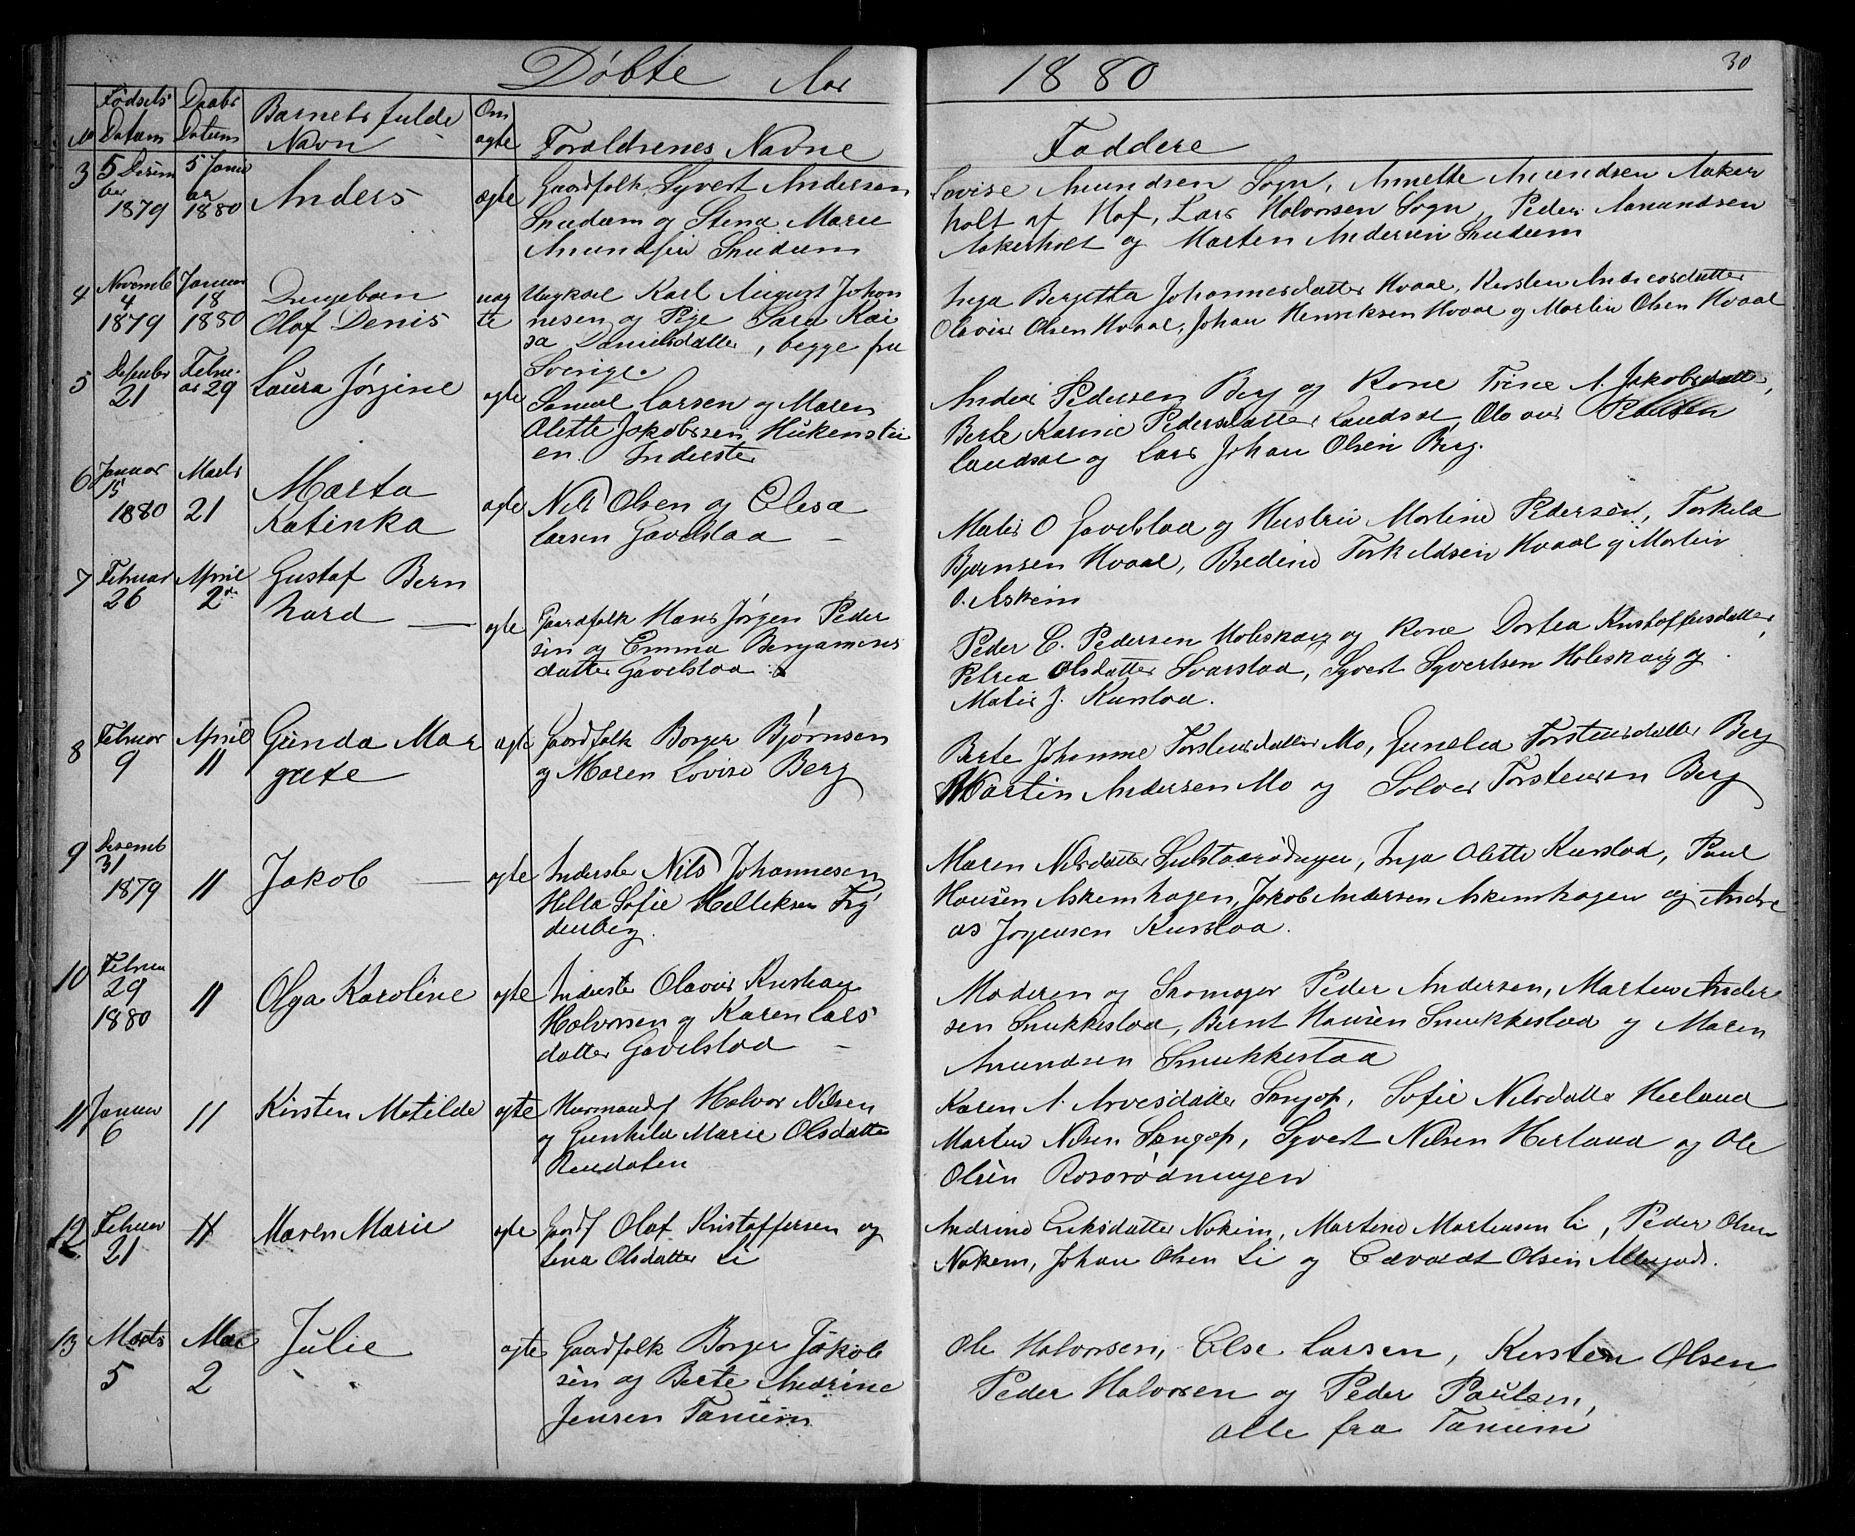 Döbte Aar 1880
30
No
Fødsels Datum
Daabs Datum
Barnets fulde Navn
Om ægte
Foraldrenes Navne
Faddere
3
5 Desem
ber
1879
5 Janu
ar
1880
Anders
ægte
Gaardfolk Syvert Andersen
Snedum og Stena Marie
Amundsen Snedum
Lovise Amundsen Sogn, Annette Amundsen Aaker
holt af Hof, Lars Halvorsen Sogn, Peder Aamundsen
Aakerholt og Marten Andersen Snedum
4
Novemb
4
1879
Januar
18
1880
Drngebarn
Olaf Denis
uæg
te
Ungkael Karl August Johan
nesen og Pige Sara Kai
sa Danielsdatter, begge fra
Sverige.
Inga Bergitta Johannesdatter Hvaal, Kirsten Andreasdatter
Olavus Olsen Hvaal, Johan Henriksen Hvaal og Martin Olsen Hvaal
5
21
Febru
ar 29
Laura Jørgine
ægte
Samuel Larsen og Maren
Olette Jakobsen Hukenstei
en. Inderster
Anders Pedersen Berg og Kone Trine A. Jakobsdatter,
Berte Karine Pedersdatter Landsat, Olavus Paulsen
Landsat og Lars Johan Olsen Berg.
6
Januar
15
1880
Marts
21
Marta
Katinka
ægte
Nils Olsen og Elesa
Larsen Gavelstad —
Matis O Gavelstad og Hustru Martine Pedersen, Torkild
Bjørnsen Hvaal, Bredine Torkildsen Hvaal og Martin
O. Askem
7
Februar
26
April
2
Gustaf Bern
hard —
ægte
Gaardfolk Hans Jørgen Peder
sen og Emma Benjamens
datter Gavelstad
Peder C. Pedersen Holeskaug og Kone Dortea Kristoffersdatter,
Petrea Olsdatter Svarstad, Syvert Syvertsen Holeskaug og
Matis J. Kurstad.
8
Februar
9
April
11
Gunda Mar
grete
ægte
Gaardfolk Borger Bjørnsen
og Maren Lovise Berg
Berte Johanne Torstensdatter Mo, Gunelia Torstensdatter Berg
Martin Andersen Mo og Solver Torstensen Berg
9
Desemb
31
1879
11
Jakob —
ægte
Inderster Nils Johannesen
Hella Sofie Melleksen Fry
denberg.
Maren Nilsdatter Gulstadrødningen, Inga Olette Kurstad, Paul
Hansen Askemhagen, Jakob Andersen Askemhagen og Andre
as Jørgensen Kurstad.
10
Februar
29
1880
11
Olga Karoline
ægte
Inderster Olavus Kushay
Halvorsen og Karen Lars
datter Gavelstad —
Moderen og Skomager Peder Andersen, Martin Ander
sen Snukkestad, Bernt Hansen Snukkestad og Maren
Amundsen Snukkestad
11
Januar
6
11
Kirsten Matilde
ægte
Husmandsf Halvor Nilsen
og Gunhild Marie Olsdatter
Reudalen
Karen A. Arvesdatter Sangøp, Sofie Nilsdatter Herland
Martin Nilsen Sangøp, Syvert Nilsen Herland og Ole
Olsen Rosarødningen
12
Februar
21
11
Maren Marie
ægte
Gardf Olaf Kristoffersen og
Lena Olsdatter Li
Andrine Eriksdatter Nakim, Martine Martensen Li, Peder Olsen
Nakem, Johan Olsen Li og Edvardt Olsen
13
Marts
5
Mai
2
Julie
ægte
Gaardfolk Borger Jakob
sen og Berte Andrine
Jensen Tanum
Ole Halvorsen, Else Larsen, Kirsten Olsen
Peder Halvorsen og Peder Paulsen,
alle fra Tanum